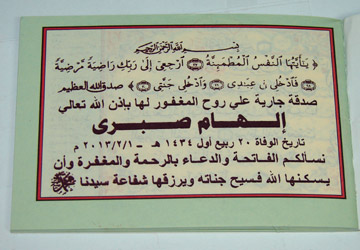 بسم الله الرحمن الرحيم
﴿ يَٰٓأَيَّتُهَا ٱلنَّفْسُ ٱلْمُطْمَئِنَّةُ ﴿٢٧﴾ ٱرْجِعِىٓ إِلَىٰ رَبِّكِ رَاضِيَةً مَّرْضِيَّةً
﴿٢٨﴾ فَٱدْخُلِى فِى عِبَٰدِى ﴿٢٩﴾ وَٱدْخُلِى جَنَّتِى ﴿٣٠﴾ ﴾ صدق الله العظيم
صدقة جارية علي روح المغفور لها بإذن الله تعالي
إلهام صبرى
تاريخ الوفاة ٢٠ ربيع أول ١٤٣٤ هـ - ٢٠١٣/٢/١ م
نسألكم الفاتحة والدعاء بالرحمة والمغفرة وأن
يسكنها الله فسيح جناته ويرزقها شفاعة سيدنا محمد